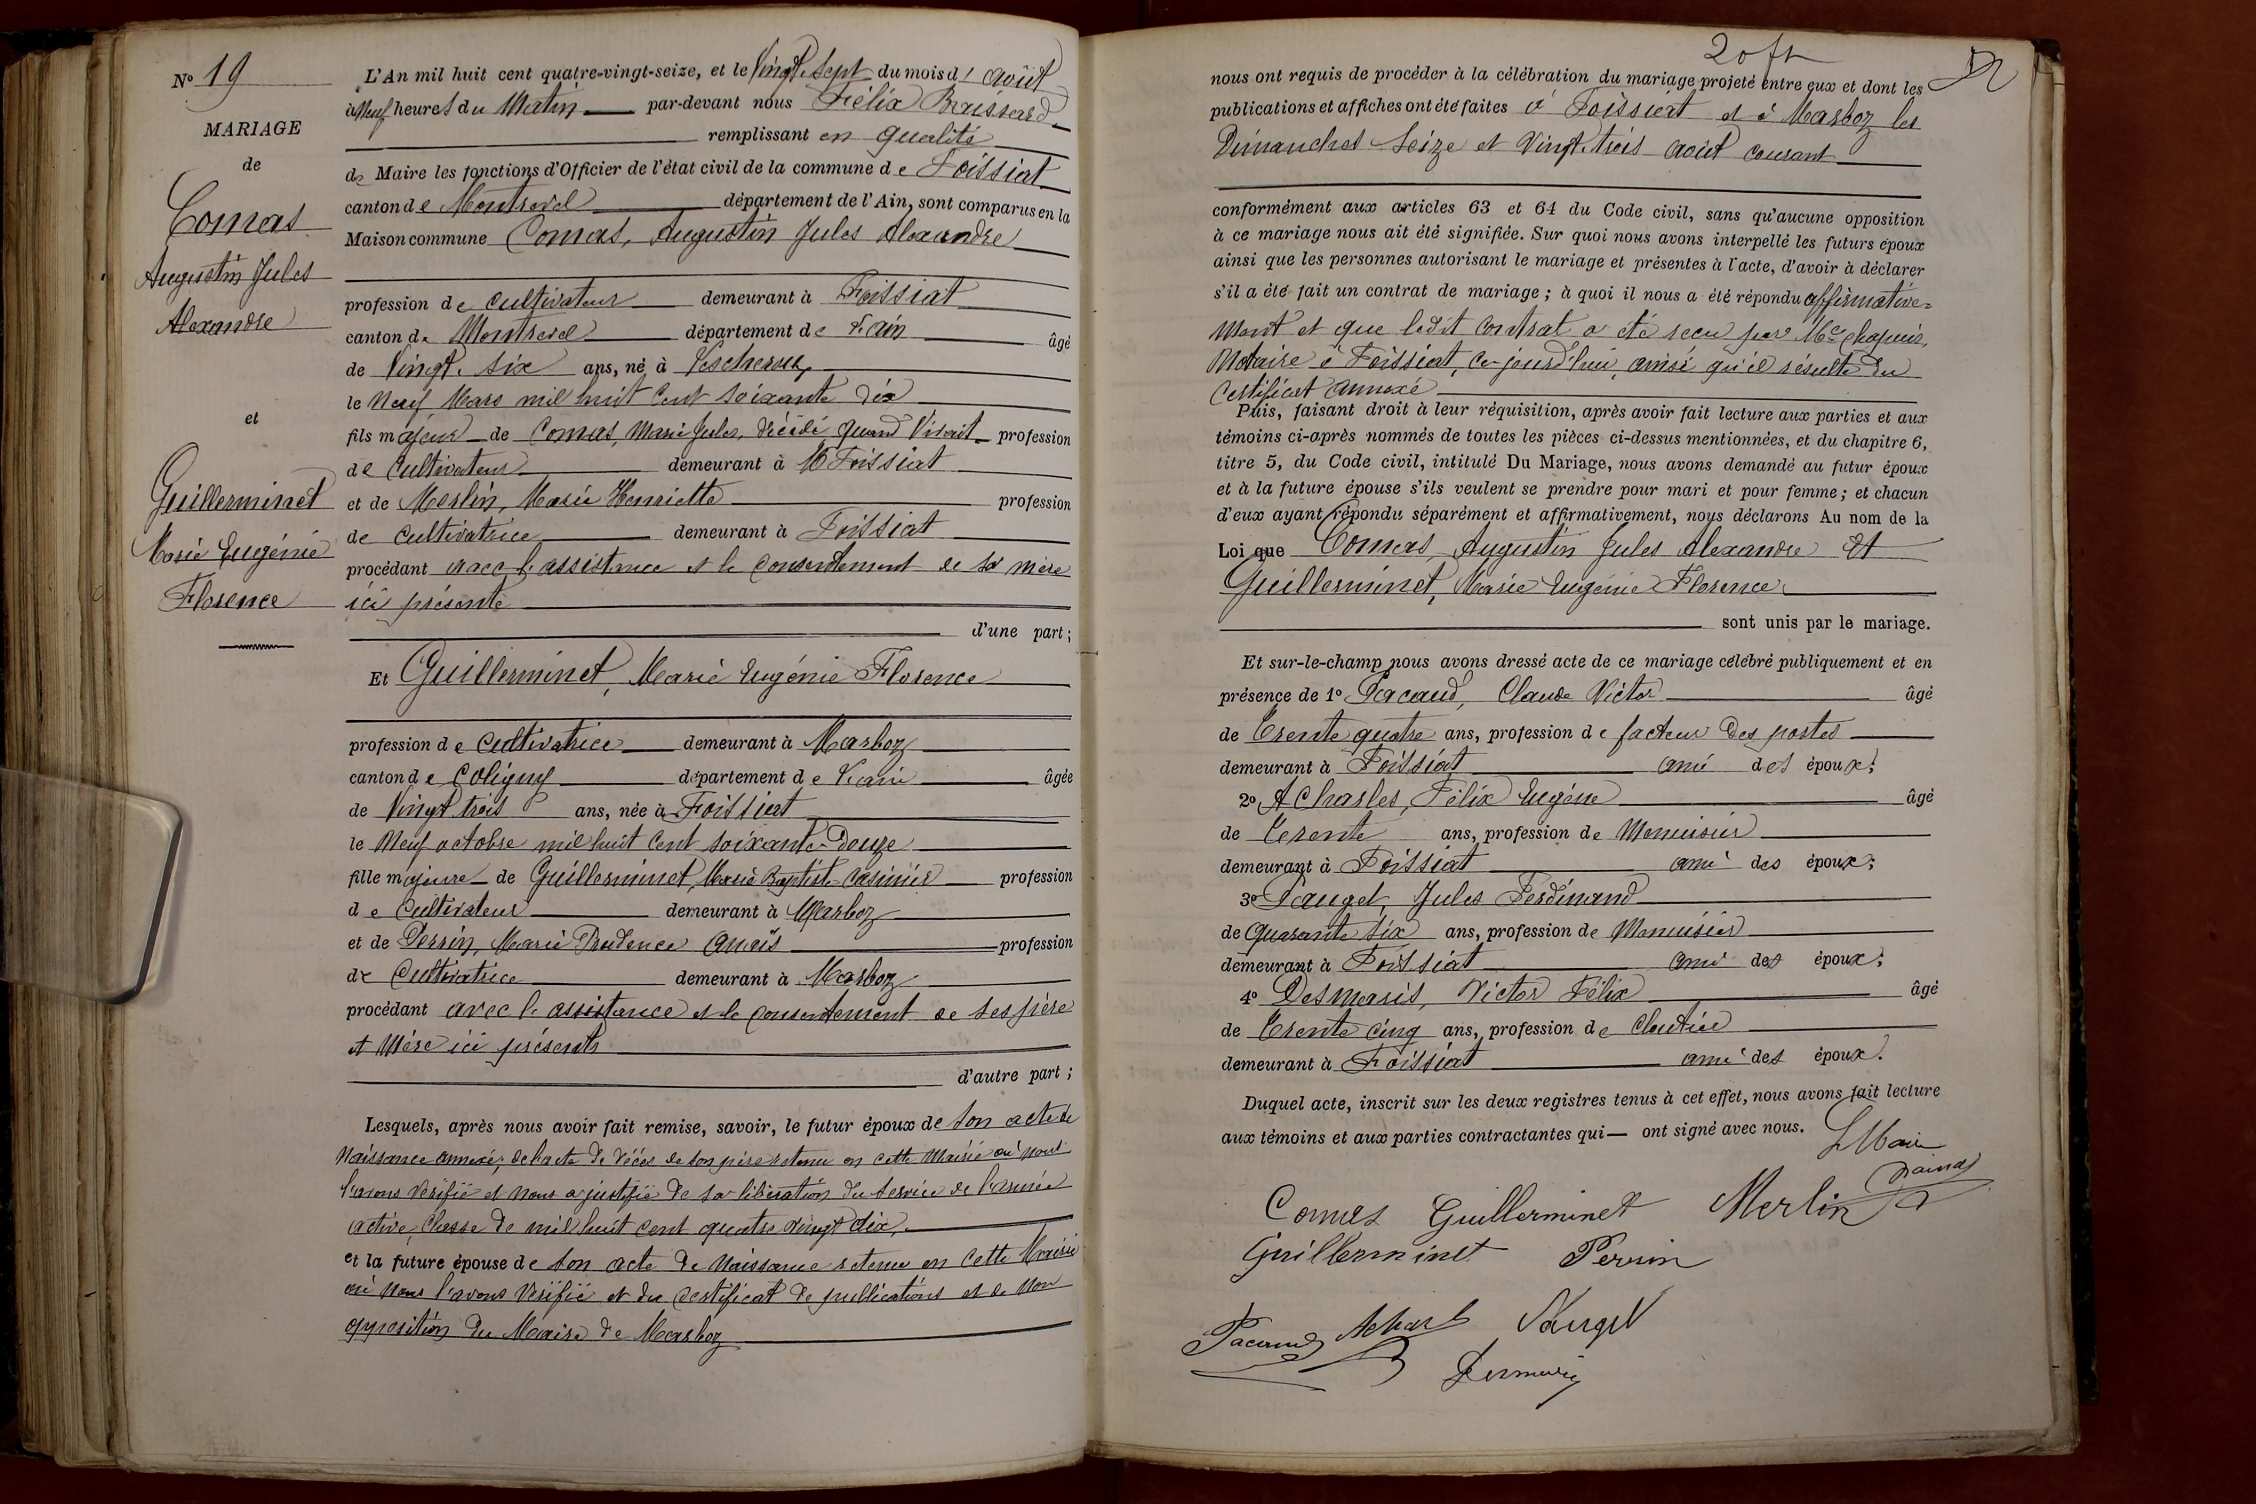 N° 19
MARIAGE
de
Comas
Augustin Jules
Alexandre
et
Guillerminet
Marie Eugénie
Florence
L'An mil huit cent quatre-vingt-seize, et le Vingt-Sept du mois d' août
à Neuf heures du Matin par-devant nous Félix
remplissant en qualité
de Maire les fonctions d'Officier de l'état civil de la commune de Foissiat
canton de Montrevel département de l'Ain, sont comparus en la
Maison commune Comas, Augustin Jules Alexandre
profession de Cultivateur demeurant à Foissiat
canton de Montrevel département de l'ain âgé
de Vingt-six ans, né à Lescheroux
le Neuf Mars mil huit Cent soixante dix
fils majeur de Comas, Marie Jules, Décédé quand Vivait profession
de Cultivateur demeurant à Foissiat
et de Merlin, Marie Henriette profession
de Cultivatrice demeurant à Foissiat
procédant avec l'assistance et le Consentement de sa mère
ici présente
d'une part;
Et Guillerminet, Marie Eugénie Florence
profession de Cultivatrice demeurant à Marboz
canton de Coligny département de l'ain âgée
de Vingt trois ans, née à Foissiat
le Neuf octobre mil huit Cent soixante-Douze
fille majeure de Guillerminet, Marie Baptiste Casimir profession
de Cultivateur demeurant à Marboz
et de Perrin, Marie Prudence Anaïs profession
de Cultivatrice demeurant à Marboz
procédant avec l'assistance et le Consentement de ses père
et Mère ici présents
d'autre part;
Lesquels, après nous avoir fait remise, savoir, le futur époux de son acte de
Naissance annexé, de l'acte de Décés de son père retenu en cette Mairie où nous
l'avons Vérifié et nous a justifié de sa libération du service de l'armée
active, Classe de mil huit cent quatre vingt dix,
et la future épouse de son acte de Naissance retenu en Cette Mairie
où nous l'avons Vérifié et du Certificat de publications et de Non
opposition du Maire de Marboz
20 ft
nous ont requis de procéder à la célébration du mariage projeté entre eux et dont les
publications et affiches ont été faites à Foissiat et à Marboz les
Dimanches Seize et Vingt-trois août courant
conformément aux articles 63 et 64 du Code civil, sans qu'aucune opposition
à ce mariage nous ait été signifiée. Sur quoi nous avons interpellé les futurs époux
ainsi que les personnes autorisant le mariage et présentes à l'acte, d'avoir à déclarer
s'il a été fait un contrat de mariage; à quoi il nous a été répondu affirmative-
ment et que ledit Contrat a été reçu par Me Chapuis,
Notaire à Foissiat, Ce jourd'hui, ainsi qu'il résulte du
Certificat annexé
Puis, faisant droit à leur réquisition, après avoir fait lecture aux parties et aux
témoins ci-après nommés de toutes les pièces ci-dessus mentionnées, et du chapitre 6,
titre 5, du Code civil, intitulé Du Mariage, nous avons demandé au futur époux
et à la future épouse s'ils veulent se prendre pour mari et pour femme; et chacun
d'eux ayant répondu séparément et affirmativement, nous déclarons Au nom de la
Loi que Comas, Augustin Jules Alexandre Et
Guillerminet, Marie Eugénie Florence
sont unis par le mariage.
Et sur-le-champ nous avons dressé acte de ce mariage célébré publiquement et en
présence de 1° Pacaud, Claude Victor âgé
de Trente quatre ans, profession de facteur des postes
demeurant à Foissiat ami des époux;
2° Acharles, Félix Eugène âgé
de Trente ans, profession de Menuisier
demeurant à Foissiat ami des époux;
3° Pauget, Jules Ferdinand
de Quarante six ans, profession de Menuisier
demeurant à Foissiat ami des époux;
4° Desmaris, Victor Félix âgé
de Trente cinq ans, profession de
demeurant à Foissiat ami des époux.
Duquel acte, inscrit sur les deux registres tenus à cet effet, nous avons fait lecture
aux témoins et aux parties contractantes qui — ont signé avec nous.
Le Maire
Comas Guillerminet Merlin
Guillerminet Perrin
Pacaud Acharles Pauget
Desmaris